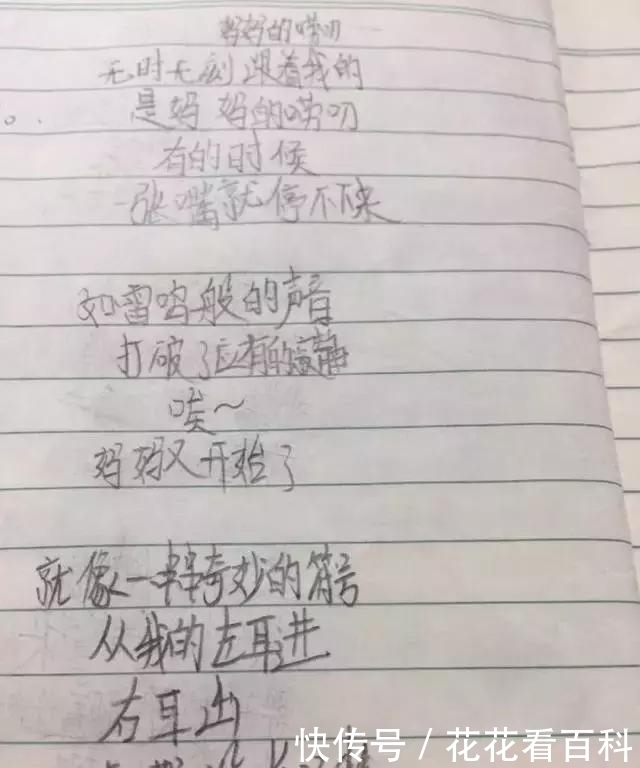 妈妈的唠叨
无时无刻跟着我的
是妈妈的唠叨
有的时候
一张嘴就停不下来
如雷鸣般的声音
打破了应有的寂静
唉~
妈妈又开始了
就像一串串奇妙的符号
从我的左耳进
右耳出
快传号/花花看百科